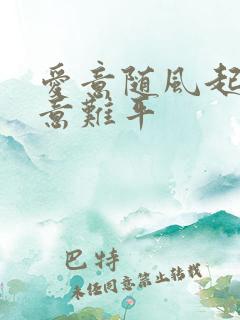 愛意随風起
意難平
巴特
未经同意禁止转载